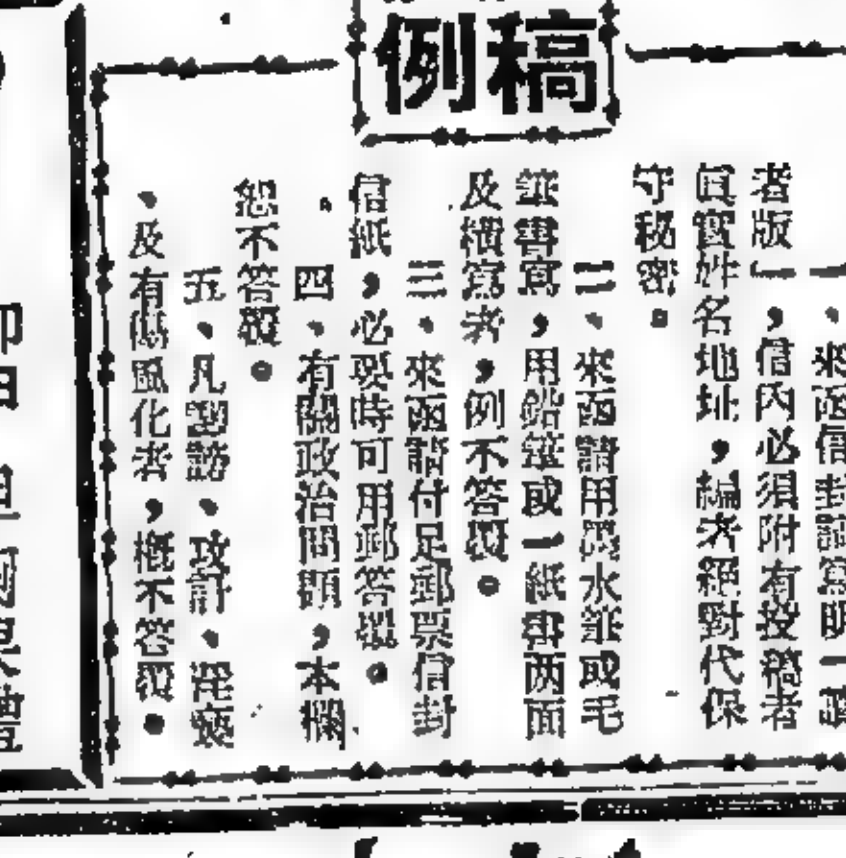 稿例
一、來函信封請寫明「讀
者版」,信內必須附有投稿者
眞實姓名地址,編者絕對代保
守秘密。
二、來函請用墨水筆或毛
筆書寫,用鉛筆或一紙書两面
及橫寫者,例不答覆。
三、來函請付足郵票信封
信紙,必要時可用郵答覆。
四、有關政治問題,本欄
恕不答覆。
五、凡謾謗、攻訐、猥褻
、及有傷風化者,概不答覆。